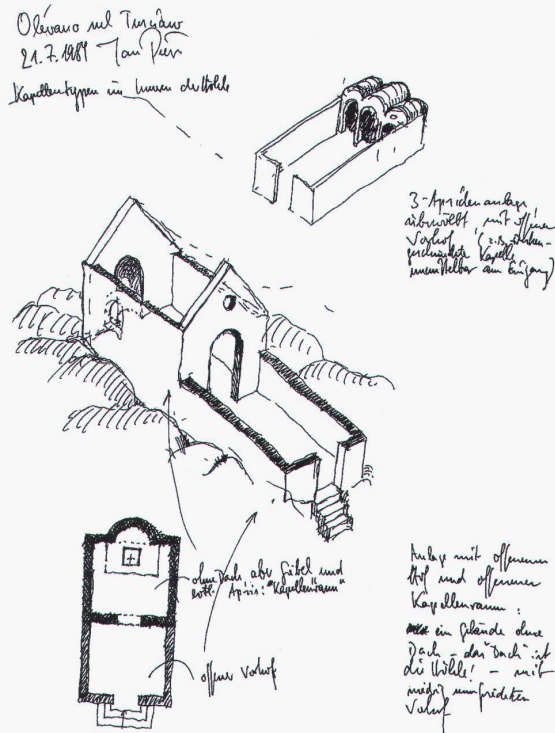 Olévano sul Tusciano
21.7.1989 Jan Pieper
Kapellentypen im Innern der Höhle
3-Apsidenanlage
überwölbt mit offenem
Vorhof
geschmückte Kapelle
unmittelbar am Eingang)
ohne Dach aber Giebel und
Apsis: "Kapellenraum"
offener Vorhof
Anlage mit offenem
Hof und offenem
Kapellenraum:
ein Gebäude ohne
Dach – das "Dach" ist
die Höhle! – mit
niedrig umfriedeten
Vorhof